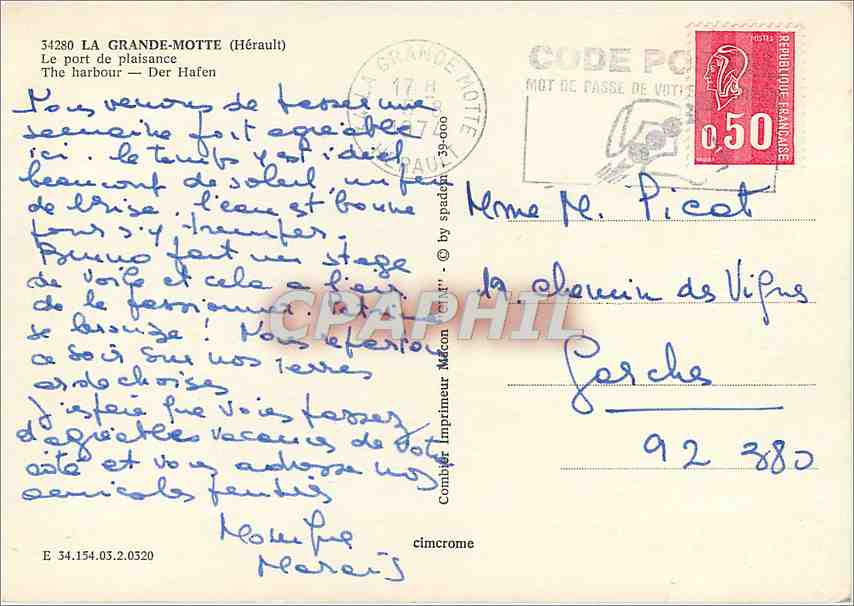 34280 LA GRANDE-MOTTE (Hérault)
Le port de plaisance
The harbour — Der Hafen
Nous venons de passer une
semaine fort agréable
ici. le temps y est idéal
beaucoup de soleil, un peu
de brise. l'eau est bonne
pour s'y tremper.
Bruno fait un stage
de voile et cela a l'air
de le passionner.
se bronze ! Nous repartons
ce soir sur nos terres
ardechoises
J'espère que vous passez
d'agréables vacances de votre
côté et vous adresse nos
amicales pensées
Monique
Marais
E 34.154.03.2.0320
cimcrome
Combier Imprimeur Macon "CIM" - © by spadem 39-000
LA GRANDE MOTTE
17 H
HERAULT
CODE PO
MOT DE PASSE DE VOTRE
POSTES
REPUBLIQUE FRANÇAISE
0,50
Mme M. Picot
19. chemin des Vignes
Garches
92 380
CPAPHIL